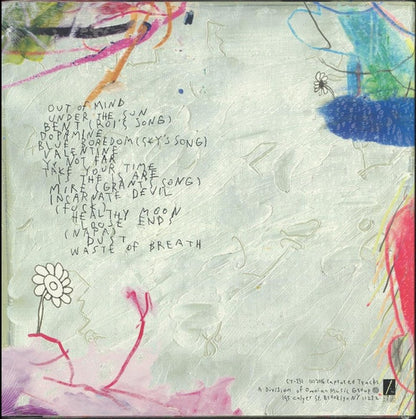 OUT OF MIND
UNDER THE SUN
BENT (ROI'S SONG)
DOPAMINE
BLUE BOREDOM (SKY'S SONG)
VALENTINE
YR NOT FAR
TAKE YOUR TIME
IS THE IS ARE
MIRE (GRANT'S SONG)
INCARNATE DEVIL
(FUCK)
HEALTHY MOON
LOOSE ENDS
(NAPA)
DUST
WASTE OF BREATH
CT-231 2016 Captured Tracks
A Division of Omnian Music Group
195 Calyer St. Brooklyn NY 11222